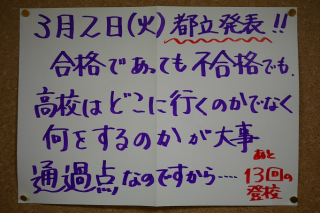 3月2日(火)都立発表!!
合格であっても不合格でも、
高校はどこに行くのかでなく
何をするのかが大事
通過点なのですから‥‥
あと
13回の
登校